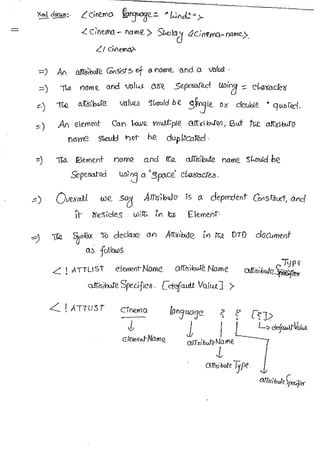 Xml docum:- <Cinema language = "hindi">
<Cinema-name> Sholay </cinema-name>
</cinema>
=> An attribute Consists of a name and a value.
=> The name and value are Seperated using = character
=> The attribute values Should be Single or double "quoted.
=> An element Can have multiple attributes, But the attribute
name should not be duplicated.
=> The Element name and the attribute name Should be
Seperated using a 'space' character.
=> Overall we say Attribute is a dependent Construct, and
it resides with in the Element.
=> The Syntax To declare an Attribute in the DTD document
as follows
<! ATTLIST element Name attribute Name attribute Type
attribute Specifier. [default Value] >
<! ATTLIST Cinema language ? ? [?]>
element Name attribute Name default Value
attribute Type
attribute Specifier